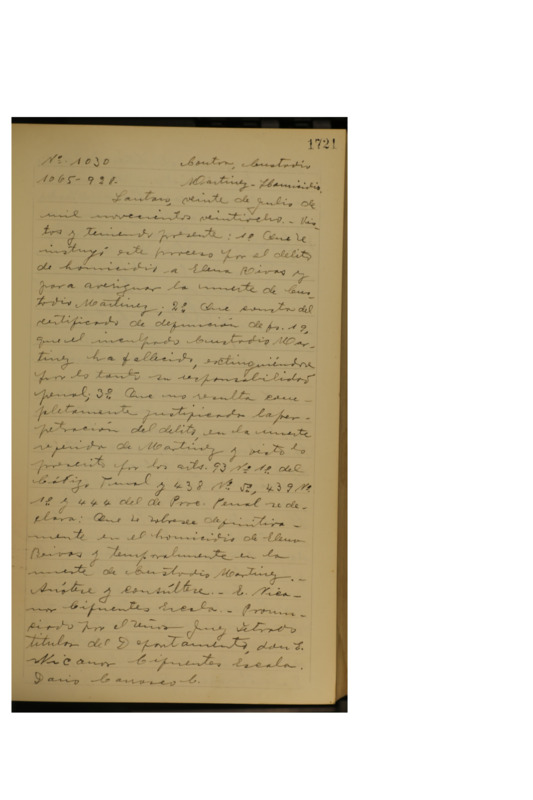 1721
Nº 1030 Contra, Custodio
1065-928. Martinez - Homicidio,
Lautaro, veinte de julio de
mil novecientos veintiocho. - Vis-
tos y teniendo presente: 1º Que se
instruyó este proceso por el delito
de homicidio a Elena Rivas y
para averiguar la muerte de Cus-
todio Martinez; 2º Que consta del
certificado de defunción de fs. 19,
que el inculpado Custodio Mar-
tinez ha fallecido, extinguiéndose
por lo tanto su responsabilidad
penal; 3º Que no resulta com-
pletamente justificada la per-
petración del delito, en la muerte
referida de Martinez y visto lo
prescrito por los arts. 93 Nº 1º del
Código Penal y 438 Nº 5º, 439 Nº
1º y 444 del de Proc. Penal se de-
clara: Que se sobresee definitiva-
mente en el homicidio de Elena
Reivas y temporalmente en la
muerte de Custodio Martinez. -
Anótese y consúltese. - E. Nica-
nor Cifuentes Escala. - Pronun-
ciado por el señor Juez Letrado
titular del Departamento, don E.
Nicanor Cifuentes Escala.
Dario Carrasco C.